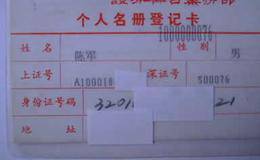 个人名册登记卡
1000000076
姓名 陈军 性别 男
上证号 A109018 深证号 S00076
身份证号码 3201 21
地址